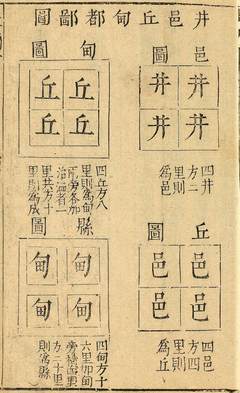 井邑丘甸都鄙圖
邑圖
井井
井井
四井
方二
里則
為邑
丘圖
邑邑
邑邑
四邑
方四
里則
為丘
甸圖
丘丘
丘丘
四丘方八
里則為甸
旁各加
治洫者一
里共方十
里則為成
縣圖
甸甸
甸甸
四甸方十
六里加甸
旁四里
方二十里
則為縣